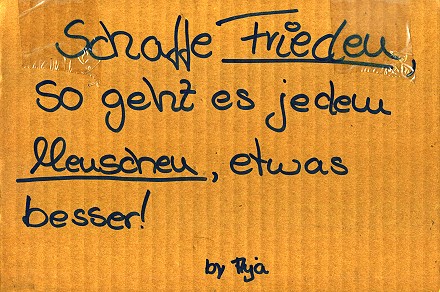 Schaffe Frieden,
so geht es jedem
Menschen, etwas
besser!
by Ilja